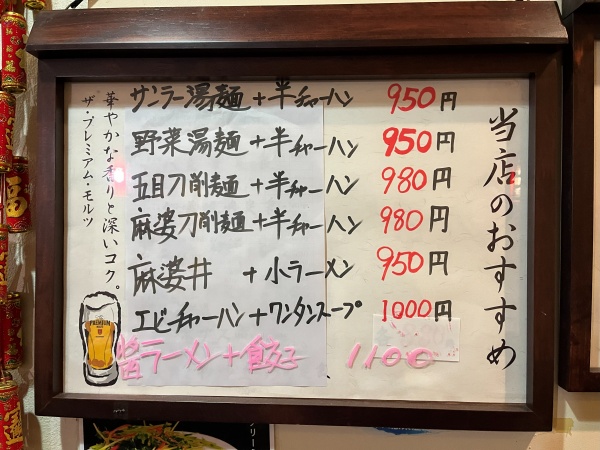 当店のおすすめ
サンラー湯麺+半チャーハン 950円
野菜湯麺+半チャーハン 950円
五目刀削麺+半チャーハン 980円
麻婆刀削麺+半チャーハン 980円
麻婆丼 +小ラーメン 950円
エビチャーハン+ワンタンスープ 1000円
醤ラーメン+餃子 1100
華やかな香りと深いコク。
ザ・プレミアム・モルツ
PREMIUM
福